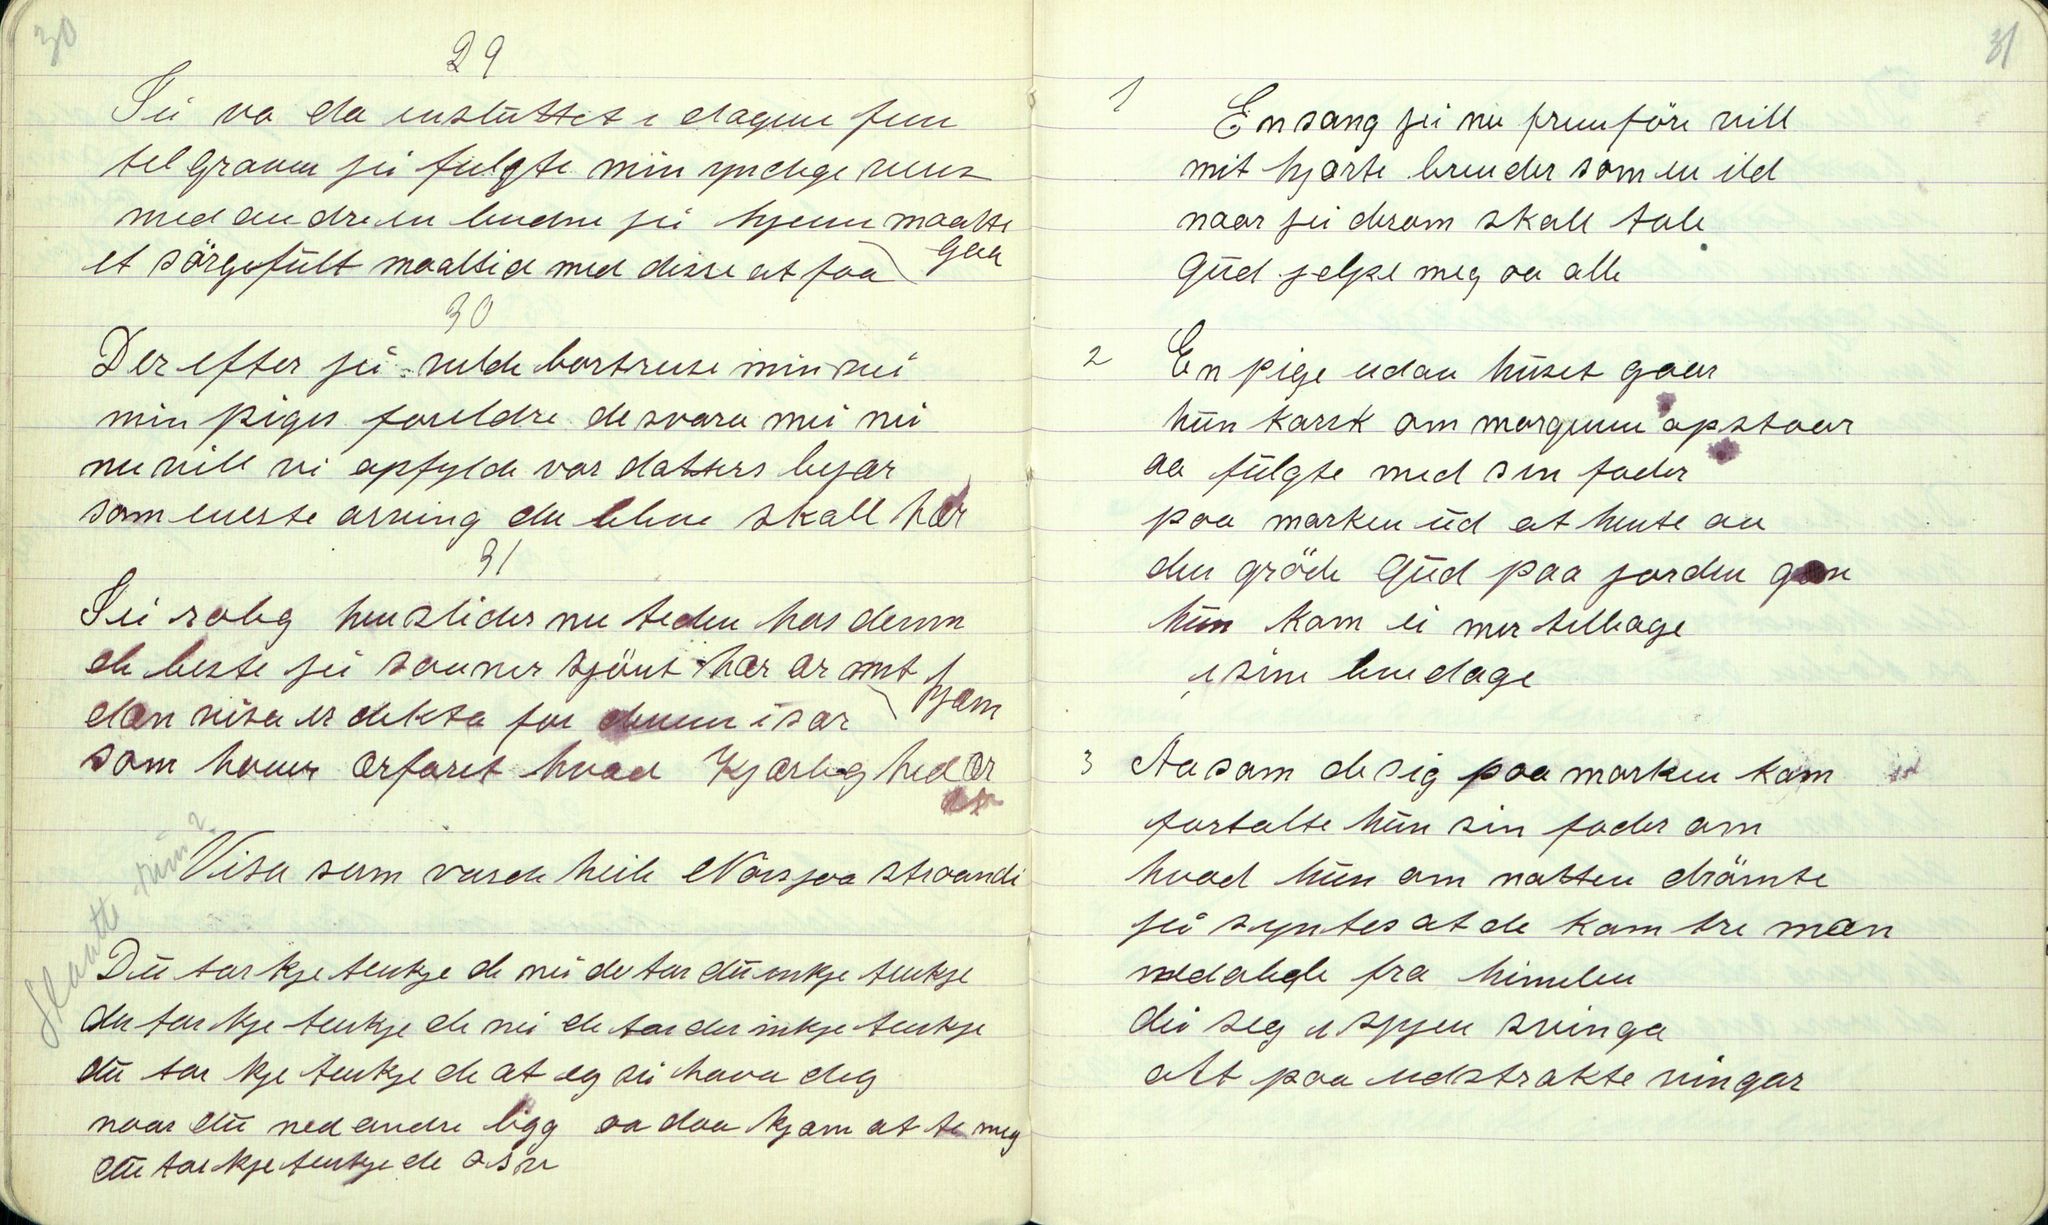 30
29
Jei va da insluttet i dagene fem
til graven jei fulgte min yndige venn
med andre en bedne jei hjem maatte
gaa
et sörgefült maaltid med disse at faa
30
Der efter jei vilde bortreise min vei
min piges foreldre de svara mei nei
nu vill vi opfylde vor datters bejær
som eneste arving du blive skall hær
31
Jei rolig henslider nu tiden hos demm
de beste jei souner sjönt hær ær mit
hjæm
den visa er dikta for demm især
som haver ærfaret hvad Kjærlighed ær
Visa som varde heile Norsjaa straandi
Slaatte rim?
Dü tar kje tenkje de nei de tar dü inkje tenkje
du tar kje tenkje de nei de tar du inkje tenkje
dü tar kje tenkje de at eg vil hava deg
naar dü ned andre ligg oa daa kjæm at te meg
dü tar kje tenkje de
31
1 En sang jei nu fremföre vill
mit hjærte brender som en ild
naar jei derom skall tale
Gud jelpe meg oa alle
2 En pige udav hüset gaar
hün karsk om morgenen opstaar
aa fülgte med sin fader
paa marken üd at hente av
den gröde Güd paa jorden gav
hün kom ei mer tilbage
i sine levedage
3 Aa som de sig paa marken kom
fortalte hün sin fader om
hvad hün om natten drömte
jei syntes at de kom tre mæn
nedalede fra himelen
dei seg i skyen svinga
alt paa udstrakte vingar